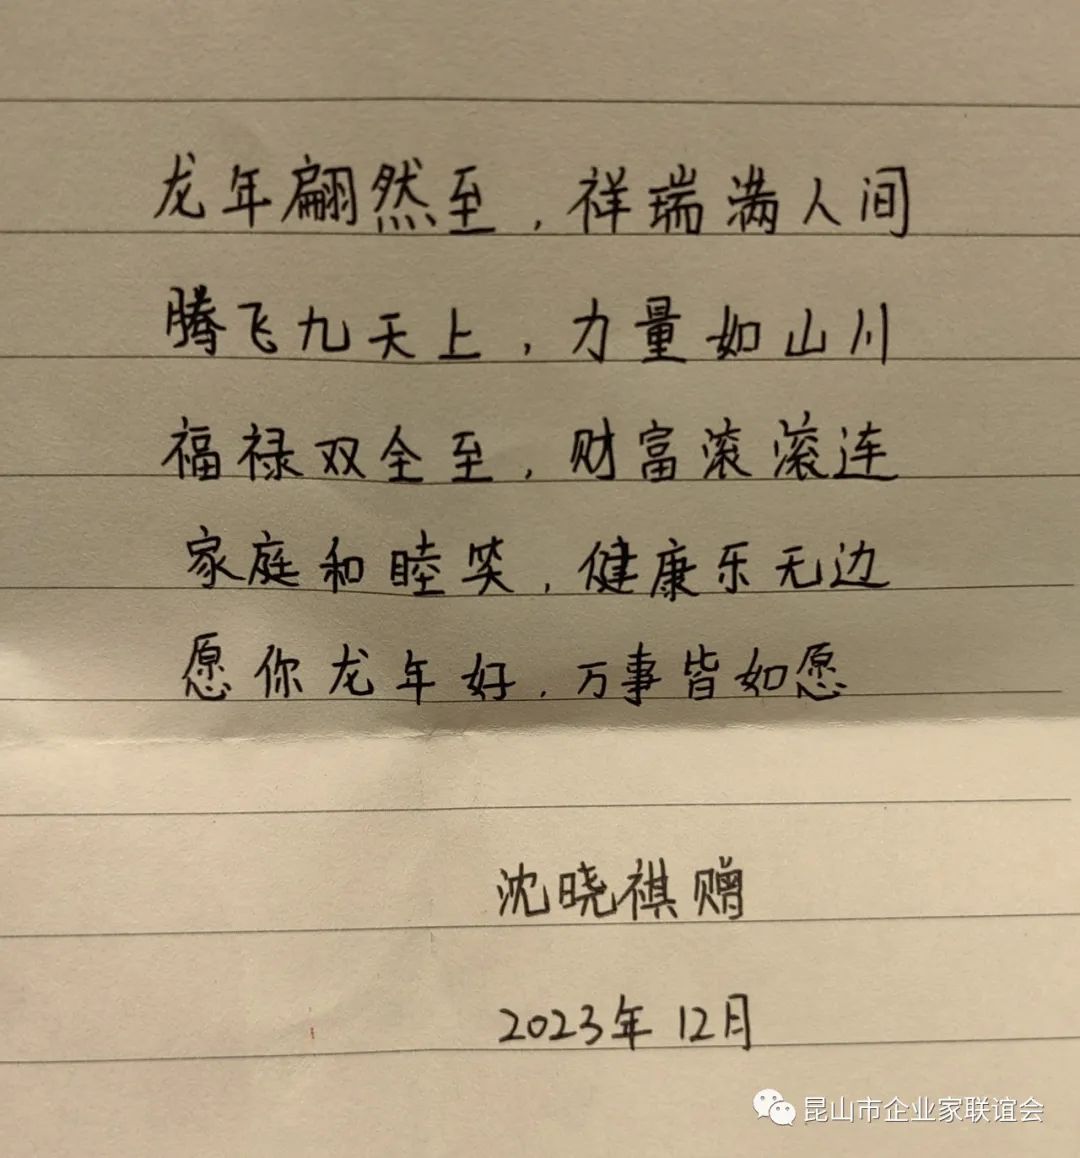 龙年翩然至，祥瑞满人间
腾飞九天上，力量如山川
福禄双全至，财富滚滚连
家庭和睦笑，健康乐无边
愿你龙年好，万事皆如愿
沈晓祺赠
2023年12月
昆山市企业家联谊会